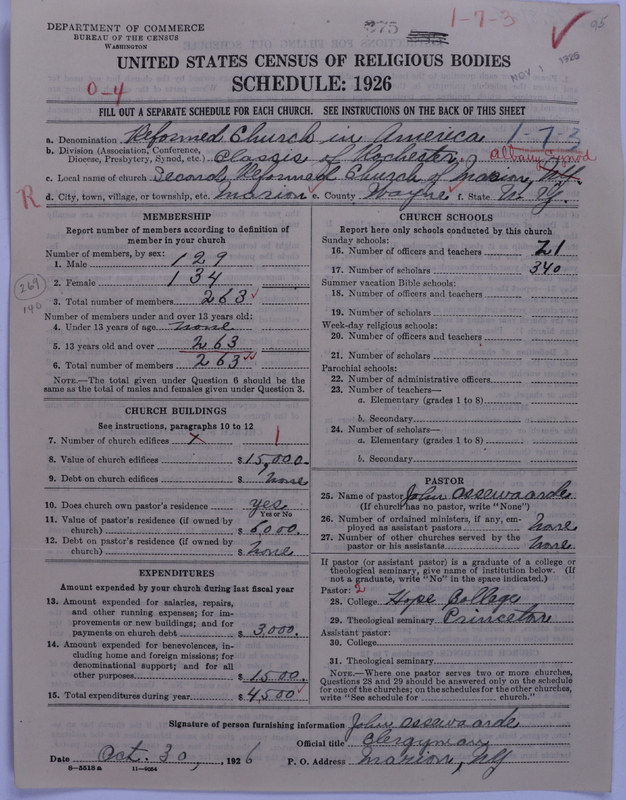 DEPARTMENT OF COMMERCE
BUREAU OF THE CENSUS
WASHINGTON
1-7-3
NOV 1 1926
UNITED STATES CENSUS OF RELIGIOUS BODIES
SCHEDULE: 1926
0-4
FILL OUT A SEPARATE SCHEDULE FOR EACH CHURCH. SEE INSTRUCTIONS ON THE BACK OF THIS SHEET
a. Denomination Reformed Church in America 1-7-3
b. Division (Association, Conference, Diocese, Presbytery, Synod, etc.) Classis of Rochester, Albany Synod
c. Local name of church Second Reformed Church of Marion, N.Y.
R
d. City, town, village, or township, etc. Marion e. County Wayne f. State N.Y.
MEMBERSHIP
Report number of members according to definition of
member in your church
Number of members, by sex:
1. Male 129
2. Female 134
269
140
3. Total number of members 263
Number of members under and over 13 years old:
4. Under 13 years of age none
5. 13 years old and over 263
6. Total number of members 263
NOTE.—The total given under Question 6 should be the
same as the total of males and females given under Question 3.
CHURCH BUILDINGS
See instructions, paragraphs 10 to 12
7. Number of church edifices 1
8. Value of church edifices $ 15,000.
9. Debt on church edifices $ none
10. Does church own pastor's residence yes
Yes or No
11. Value of pastor's residence (if owned by
church) $ 6000.
12. Debt on pastor's residence (if owned by
church) $ none
EXPENDITURES
Amount expended by your church during last fiscal year
13. Amount expended for salaries, repairs,
and other running expenses; for im-
provements or new buildings; and for
payments on church debt $ 3,000.
14. Amount expended for benevolences, in-
cluding home and foreign missions; for
denominational support; and for all
other purposes $ 1500.
15. Total expenditures during year $ 4500
CHURCH SCHOOLS
Report here only schools conducted by this church
Sunday schools:
16. Number of officers and teachers 21
17. Number of scholars 340
Summer vacation Bible schools:
18. Number of officers and teachers
19. Number of scholars
Week-day religious schools:
20. Number of officers and teachers
21. Number of scholars
Parochial schools:
22. Number of administrative officers
23. Number of teachers—
a. Elementary (grades 1 to 8)
b. Secondary
24. Number of scholars—
a. Elementary (grades 1 to 8)
b. Secondary
PASTOR
25. Name of pastor John Ossewaarde
(If church has no pastor, write "None")
26. Number of ordained ministers, if any, em-
ployed as assistant pastors None
27. Number of other churches served by the
pastor or his assistants None
If pastor (or assistant pastor) is a graduate of a college or
theological seminary, give name of institution below. (If
not a graduate, write "No" in the space indicated.)
Pastor: 2
28. College Hope College
29. Theological seminary Princeton
Assistant pastor:
30. College
31. Theological seminary
NOTE.—Where one pastor serves two or more churches,
Questions 28 and 29 should be answered only on the schedule
for one of the churches; on the schedules for the other churches,
write "See schedule for church."
Signature of person furnishing information John Ossewaarde
Official title Clergyman
Date Oct. 30, 1926 P. O. Address Marion, NY
8-5518a 11-9034